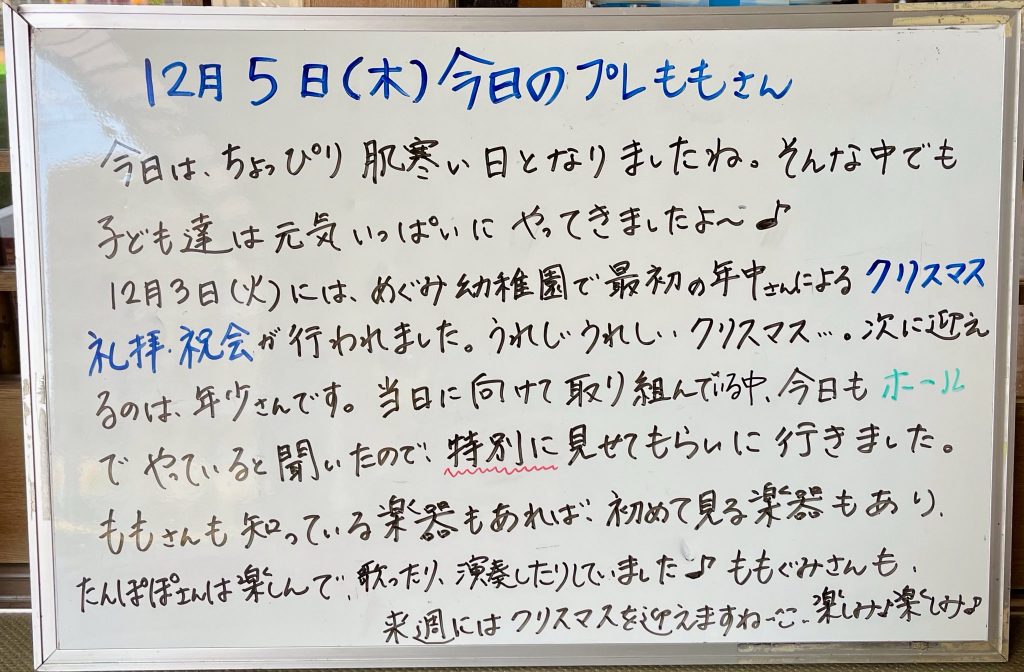 12月5日(木)今日のプレももさん
今日は、ちょっぴり肌寒い日となりましたね。そんな中でも
子ども達は元気いっぱいにやってきましたよ〜♪
12月3日(火)には、めぐみ幼稚園で最初の年中さんによるクリスマス
礼拝・祝会が行われました。うれしいうれしいクリスマス…。次に迎え
るのは、年少さんです。当日に向けて取り組んでいる中、今日もホール
でやっていると聞いたので、特別に見せてもらいに行きました。
ももさんも知っている楽器もあれば、初めて見る楽器もあり、
たんぽぽさんは楽しんで、歌ったり、演奏したりしていました♪ももぐみさんも、
来週にはクリスマスを迎えますね 楽しみ♪楽しみ♪